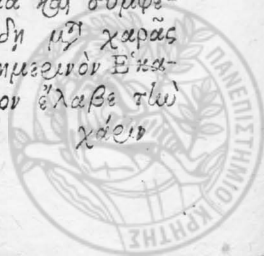 α καὶ συμφέ-
δη μὲ χαρᾶς
ημερινὸν Εκα-
ον ἔλαβε τὴν
χάριν
ΠΑΝΕΠΙΣΤΗΜΙΟ ΚΡΗΤΗΣ